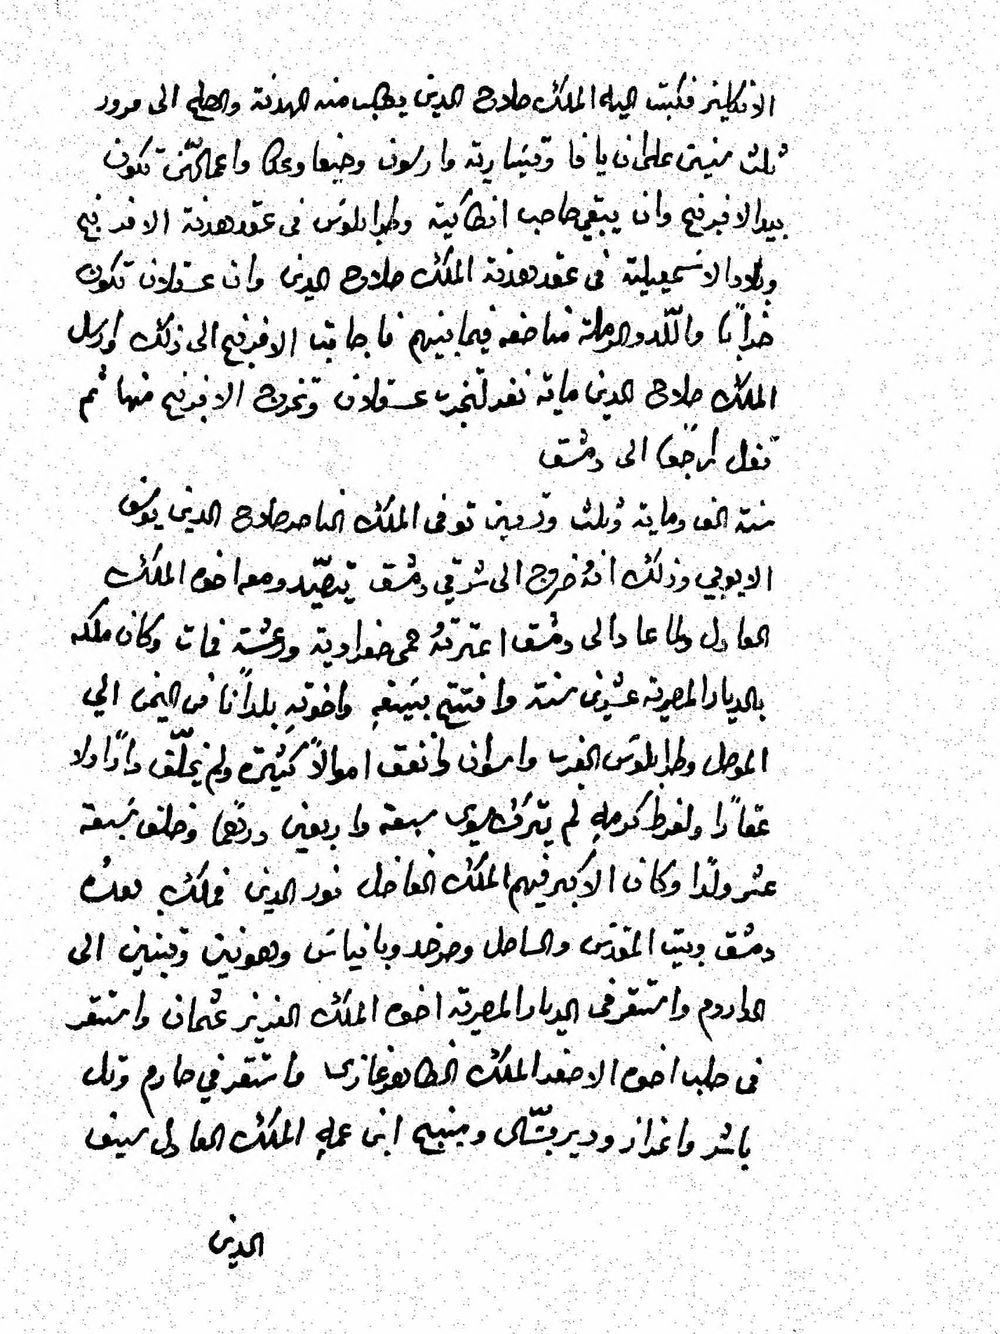 الانكليز فكتب اليه الملك صلاح الدين يطلب منه الهدنة والصلح الى مرور
ثلث سنين على ان يافا وقيسارية وارسوف وحيفا وعكا واعمالهن تكون
بيد الافرنج وان يبقي صاحب انطاكية وطرابلوس في عقد هدنة الافرنج
وبلاد الاسمعيلية في عقد هدنة الملك صلاح الدين وان عسقلان تكون
خرابًا واللد والرملة مناصفه فيما بينهم فاجابت الافرنج الى ذلك وارسل
الملك صلاح الدين ماية نفر لتخرب عسقلان وتخرج الافرنج منها ثم
قفل راجعًا الى دمشق
سنة الف وماية وثلث وتسعين توفى الملك الناصر صلاح الدين يوسف
الايوبي وذلك انهُ خرج الى شرقي دمشق يتصيّد ومعه اخوه الملك
العادل ولما عاد الى دمشق اعترتهُ حمى صفراوية ورعشة فمات وكان ملكه
بالديار المصرية عشرين سنة وافتتح بسيفهِ واخوتهِ بلدانًا من اليمن الي
الموصل وطرابلوس الغرب واسوان وانفق اموالاً كثيرة ولم يخلّف دارًا ولا
عقارًا ولفرط كرمهِ لم يترك سوى سبعة واربعين درهمًا وخلف سبعة
عشر ولدًا وكان الاكبر فيهم الملك الفاضل نور الدين فملك بعدهُ
دمشق وبيت المقدس والساحل وصرخد وبانياس وهونين وتبنين الى
الداروم واستقر في الديار المصرية اخوه الملك العزيز عثمان واستقر
في حلب اخوه الاصغر الملك الظاهر غازى واستقر في حارم وتل
باشر واعزاز ودير بسّاك ومنبج ابن عمهِ الملك العادل سيف
الدين